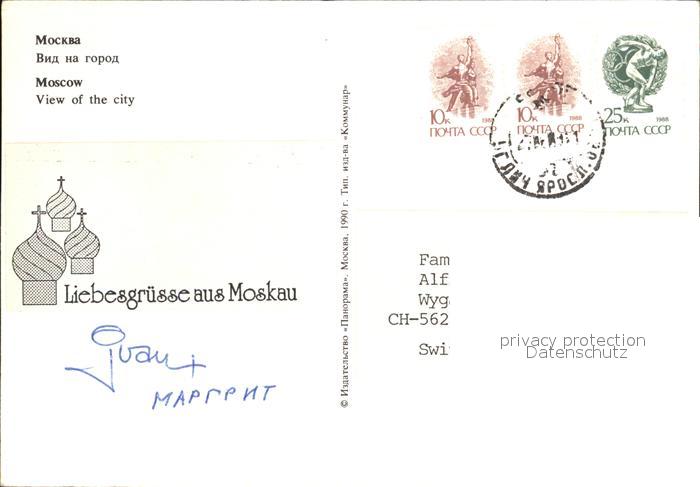 Москва
Вид на город
Moscow
View of the city
10к 1988
ПОЧТА СССР
10к 1988
ПОЧТА СССР
25к 1988
ПОЧТА СССР
УГЛИЧ ЯРОСЛ. ОБ
Liebesgrüsse aus Moskau
Ivan +
МАРГРИТ
© Издательство «Панорама». Москва. 1990 г. Тип. изд-ва «Коммунар»
Fam
Alf
Wyg
CH-562
Swi
privacy protection
Datenschutz